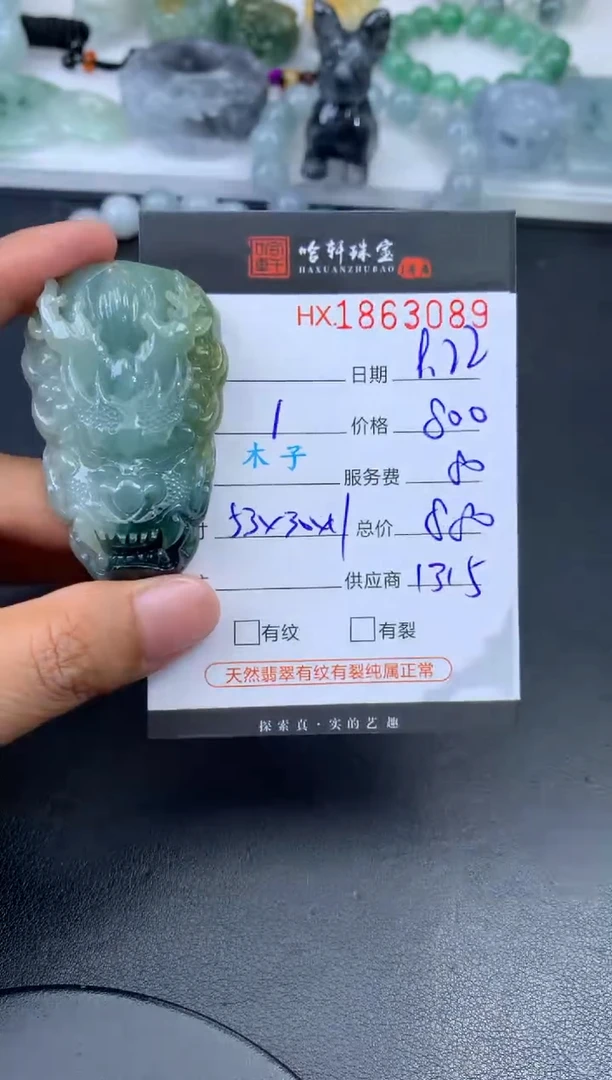 哈轩珠宝
HAXUANZHUBAO
HX.1863089
日期
1 价格 800
木子
服务费 80
53x30x 总价 880
供应商 1315
有纹 有裂
天然翡翠有纹有裂纯属正常
探索真·实的艺趣